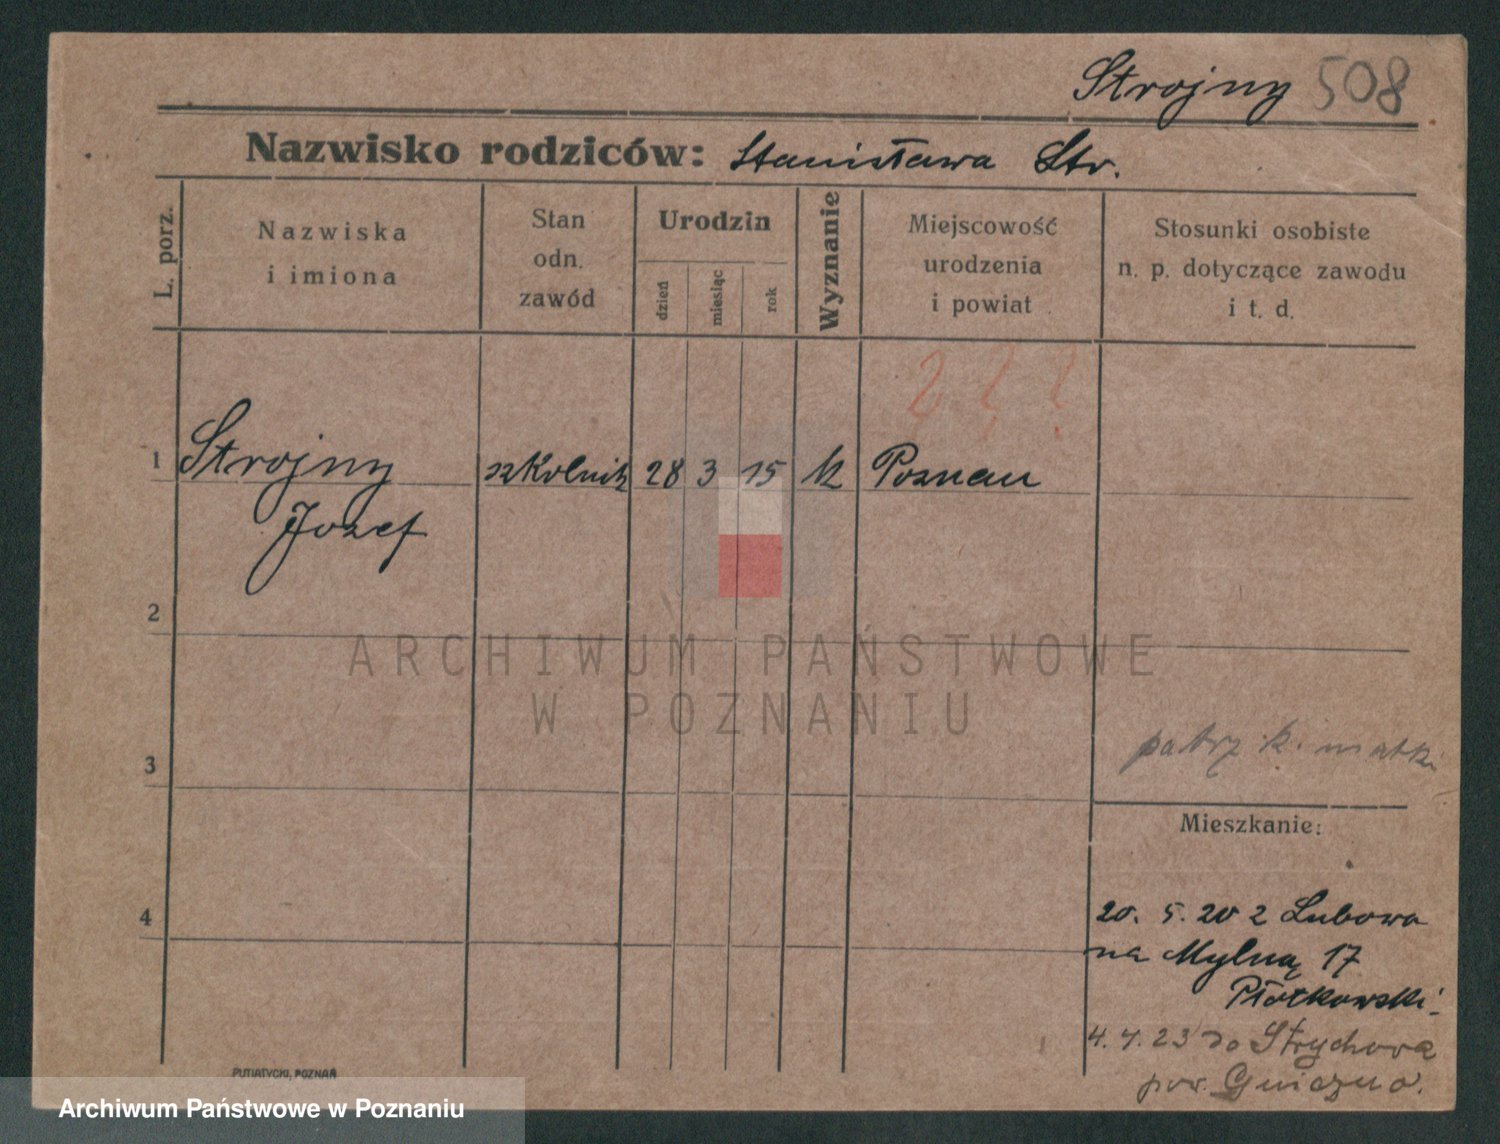 Strojny 508
Nazwisko rodziców: Stanisława Str.
L. porz.
Nazwiska
i imiona
Stan
odn.
zawód
Urodzin
dzień
miesiąc
rok
Wyznanie
Miejscowość
urodzenia
i powiat
Stosunki osobiste
n. p. dotyczące zawodu
i t. d.
? ? ?
1 Strojny szkolnik 28 3 15 k Poznan
Jozef
2
ARCHIWUM PAŃSTWOWE
W POZNANIU
3
patrz k. matki
Mieszkanie:
4
20. 5. 20 z Lubowa
na Mylną 17
Płotkowski.
4. 4. 23 do Strychowa
pow. Gniezno.
PUTIATYCKI, POZNAŃ
Archiwum Państwowe w Poznaniu